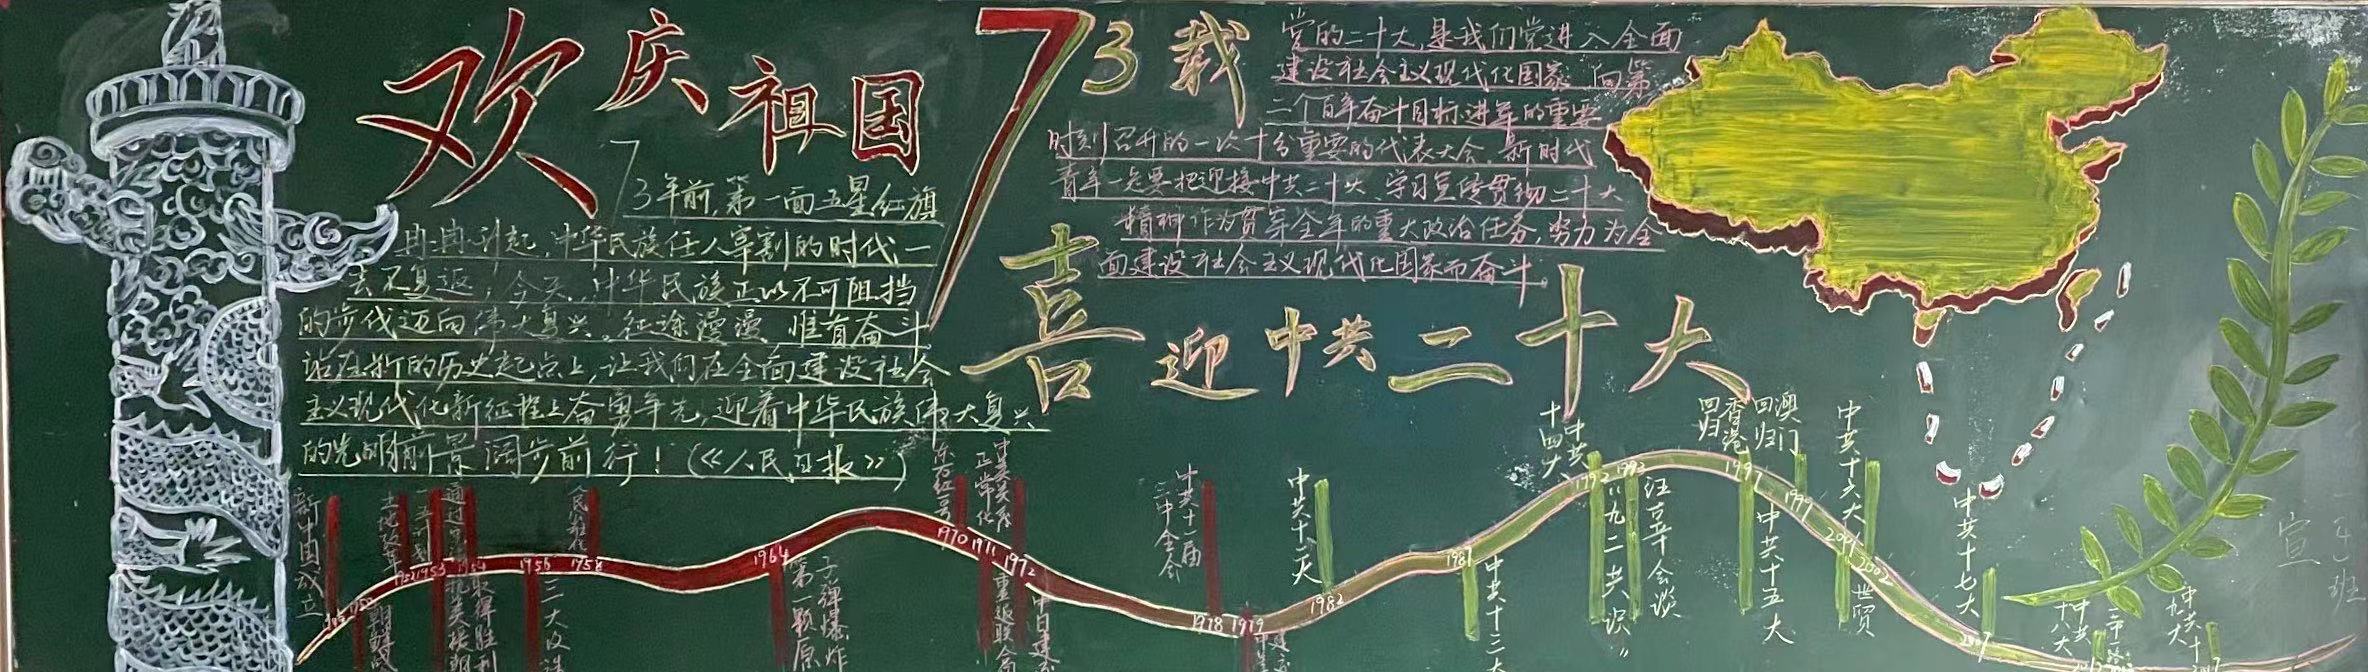 欢庆祖国73载
73年前,第一面五星红旗
冉冉升起,中华民族任人宰割的时代一
去不复返;今天,中华民族正以不可阻挡
的步伐迈向伟大复兴。征途漫漫,惟有奋斗
站在新的历史起点上,让我们在全面建设社会
主义现代化新征程上奋勇争先,迎着中华民族伟大复兴
的光明前景阔步前行!(《人民日报》)
党的二十大,是我们党进入全面
建设社会主义现代化国家 向第
二个百年奋斗目标进军的重要
时刻召开的一次十分重要的代表大会。新时代
青年一定要把迎接中共二十大、学习宣传贯彻二十大
精神作为贯穿全年的重大政治任务,努力为全
面建设社会主义现代化国家而奋斗。
喜迎中共二十大
新中国成立
土地改革
1952
1953
1954
抗美援朝
取得胜利
1956
三大改造
1958
人民公社
1964
第一颗原
子弹爆炸
东方红一号
1970
1971
重返联合
中美关系
正常化
1972
中日建交
中共十一届
三中全会
1978
1979
中共十二大
1982
1987
中共十三大
中共
十四大
1992
"九二共识"
1993
汪辜会谈
香港
回归
1997
中共十五大
澳门
回归
1999
2001
世贸
中共十六大
2002
中共十七大
2007
中共
十八大
2012
中共十
九大
2017
宣
班